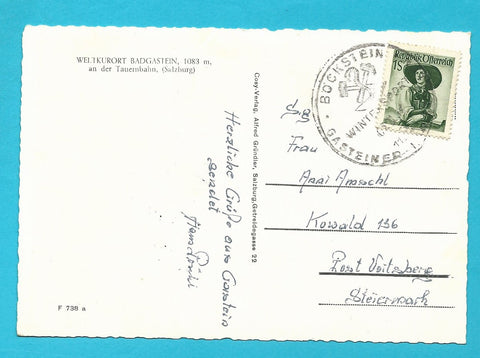 WELTKURORT BADGASTEIN, 1083 m,
an der Tauernbahn, (Salzburg)
Herzliche Grüße aus Gastein
sendet
Hans
Cosy-Verlag, Alfred Gründler, Salzburg, Getreidegasse 22
F 738 a
BÖCKSTEIN
GASTEINER
Republik Österreich
1S
Frau
Anni
Kowald 136
Post Voitsberg
Steiermark